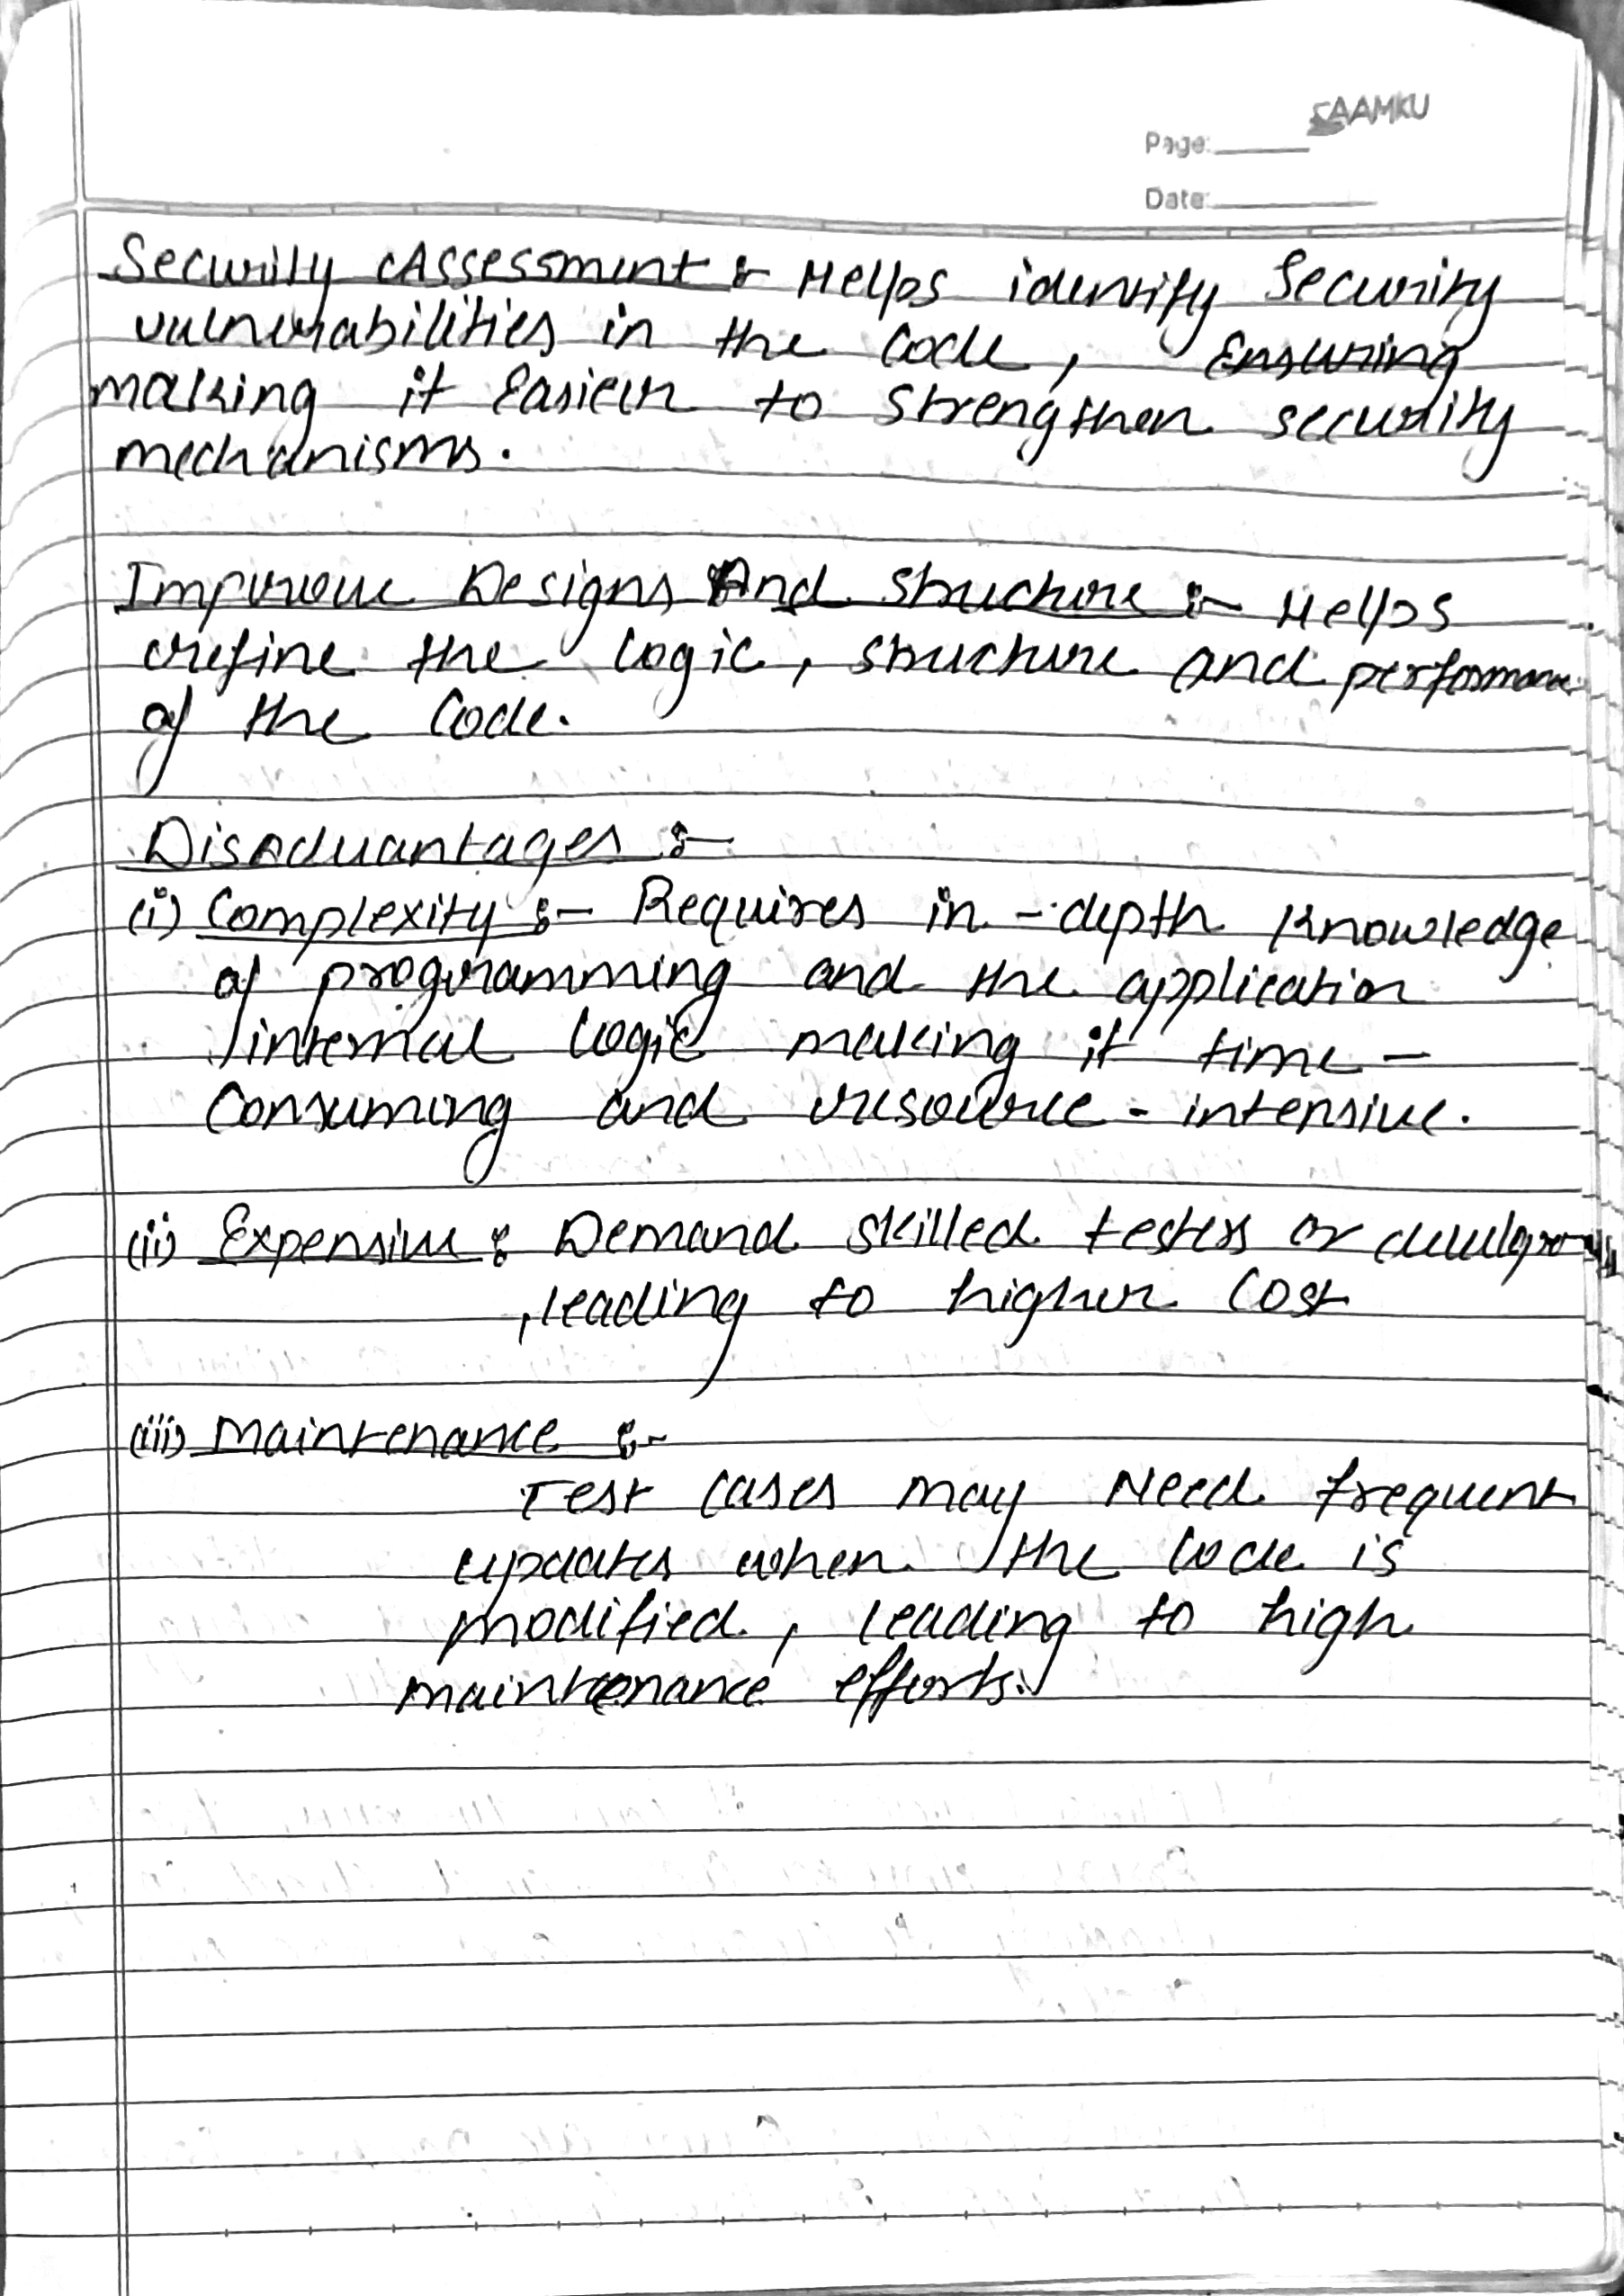 SAAMKU
Page:
Date:
Security Assessment :- Helps identify Security
vulnerabilities in the Code, Ensuring
making it Easier to strengthen security
mechanisms.
Improve Designs And Structure :- Helps
refine the logic, structure and performance
of the Code.
Disadvantages :-
(i) Complexity :- Requires in-depth Knowledge
of programming and the application
internal logic making it time-
Consuming and resource-intensive.
(ii) Expensive : Demand skilled testers or
,leading to higher Cost
(iii) Maintenance :-
Test Cases may Need frequent
updates when the Code is
modified, leading to high
maintenance efforts.